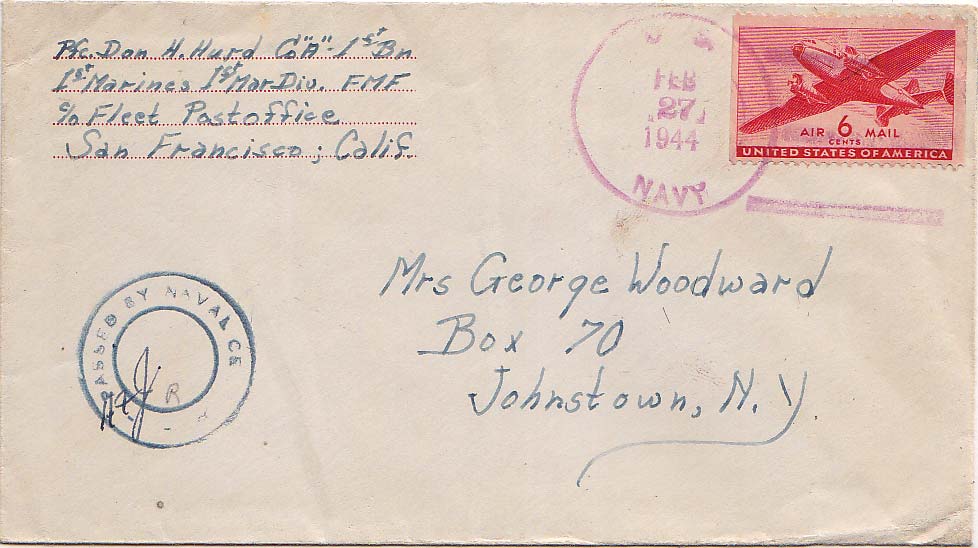 Pfc. Don H. Hurd Co"A"-1st Bn
1st Marines 1st Mar-Div. FMF
c/o Fleet Postoffice
San Francisco; Calif.
U S
FEB
27
1944
NAVY
AIR 6 MAIL
CENTS
UNITED STATES OF AMERICA
Mrs George Woodward
Box 70
Johnstown, N.Y
PASSED BY NAVAL CE
R